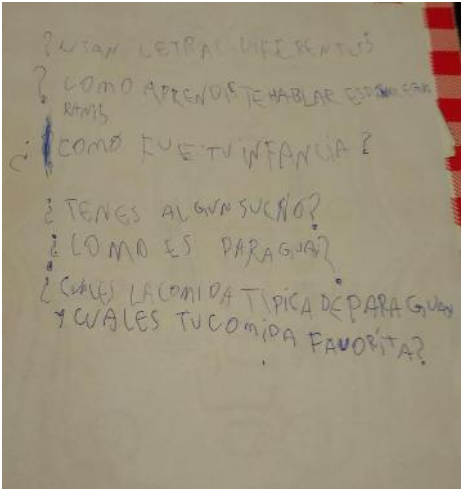 ¿USAN LETRAS DIFERENTES
¿COMO APRENDISTE HABLAR
RANIS
¿COMO FUE TU INFANCIA?
¿TENES ALGUN SUEÑO?
¿COMO ES PARAGUAI?
¿CUALES LA COMIDA TIPICA DE PARAGUAY
Y CUALES TU COMIDA FAVORITA?